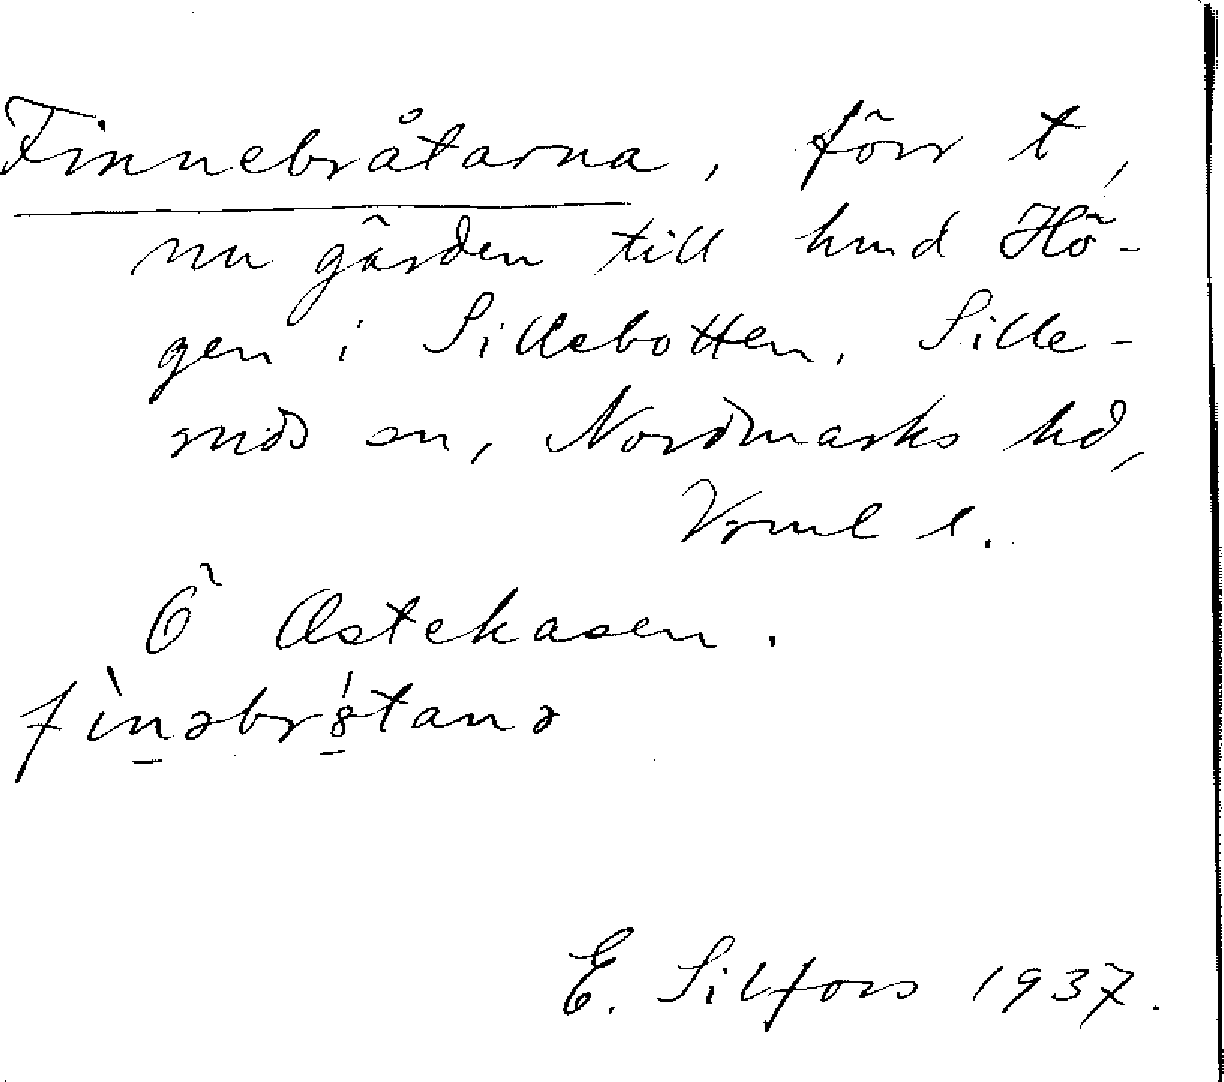 Finnebråtarna, förr t,
nu gärden till hmd Hö-
gen i Sillebotten, Sille-
ruds sn, Nordmarks hd,
Vrml l.
Ö Ostekasen.
fìnəbrátanə
E. Silfors 1937.